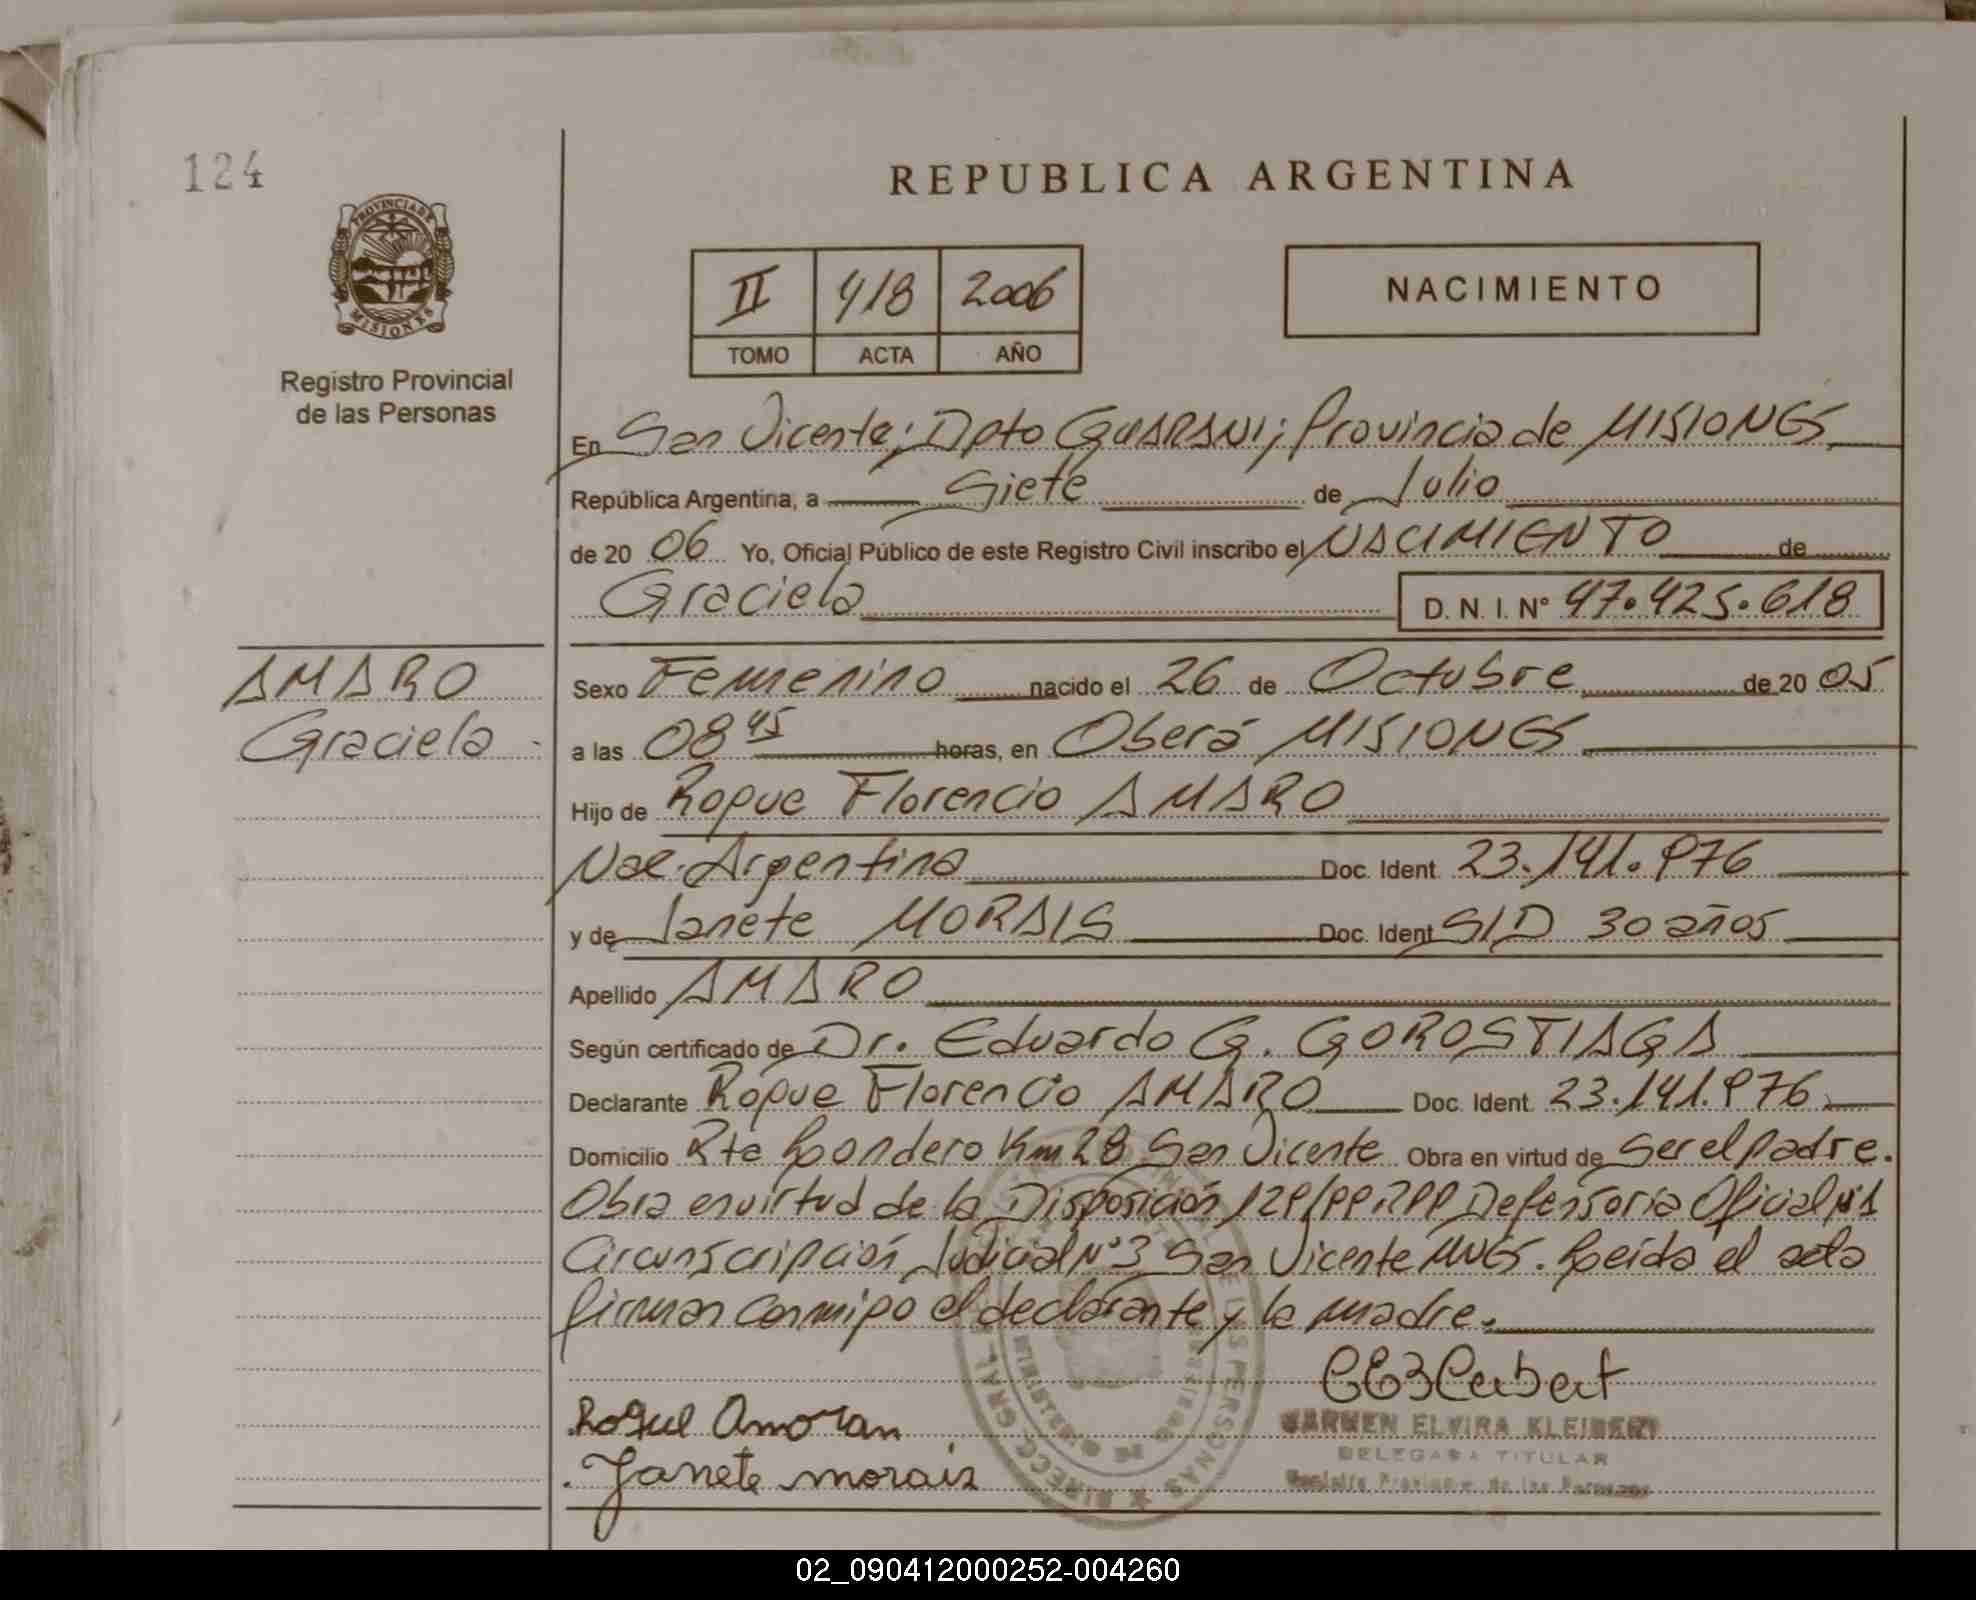 124
REPUBLICA ARGENTINA
PROVINCIA DE MISIONES
Registro Provincial
de las Personas
II 418 2006
TOMO ACTA AÑO
NACIMIENTO
En San Vicente; Dpto GUARANI; Provincia de MISIONES
República Argentina, a Siete de Julio
de 20 06 Yo, Oficial Público de este Registro Civil inscribo el NACIMIENTO de
Graciela D. N. I. N° 47.425.618
AMARO
Graciela
Sexo Femenino nacido el 26 de Octubre de 20 05
a las 08 45 horas, en Oberá MISIONES
Hijo de Roque Florencio AMARO
Nac. Argentina Doc. Ident 23.141.976
y de Janete MORAIS Doc. Ident S/D 30 años
Apellido AMARO
Según certificado de Dr. Eduardo G. GOROSTIAGA
Declarante Roque Florencio AMARO Doc. Ident. 23.141.976
Domicilio Rta Km 28 San Vicente Obra en virtud de ser el padre.
Obra en virtud de la Disposición Defensoria Oficial N°1
Circunscripción Judicial N°3 San Vicente MNES. Leida el acta
firman conmigo el declarante y la madre.
Roque
Janete morais
CARMEN ELVIRA KLEIBERT
DELEGADA TITULAR
Registro Provincial de las Personas
02_090412000252-004260